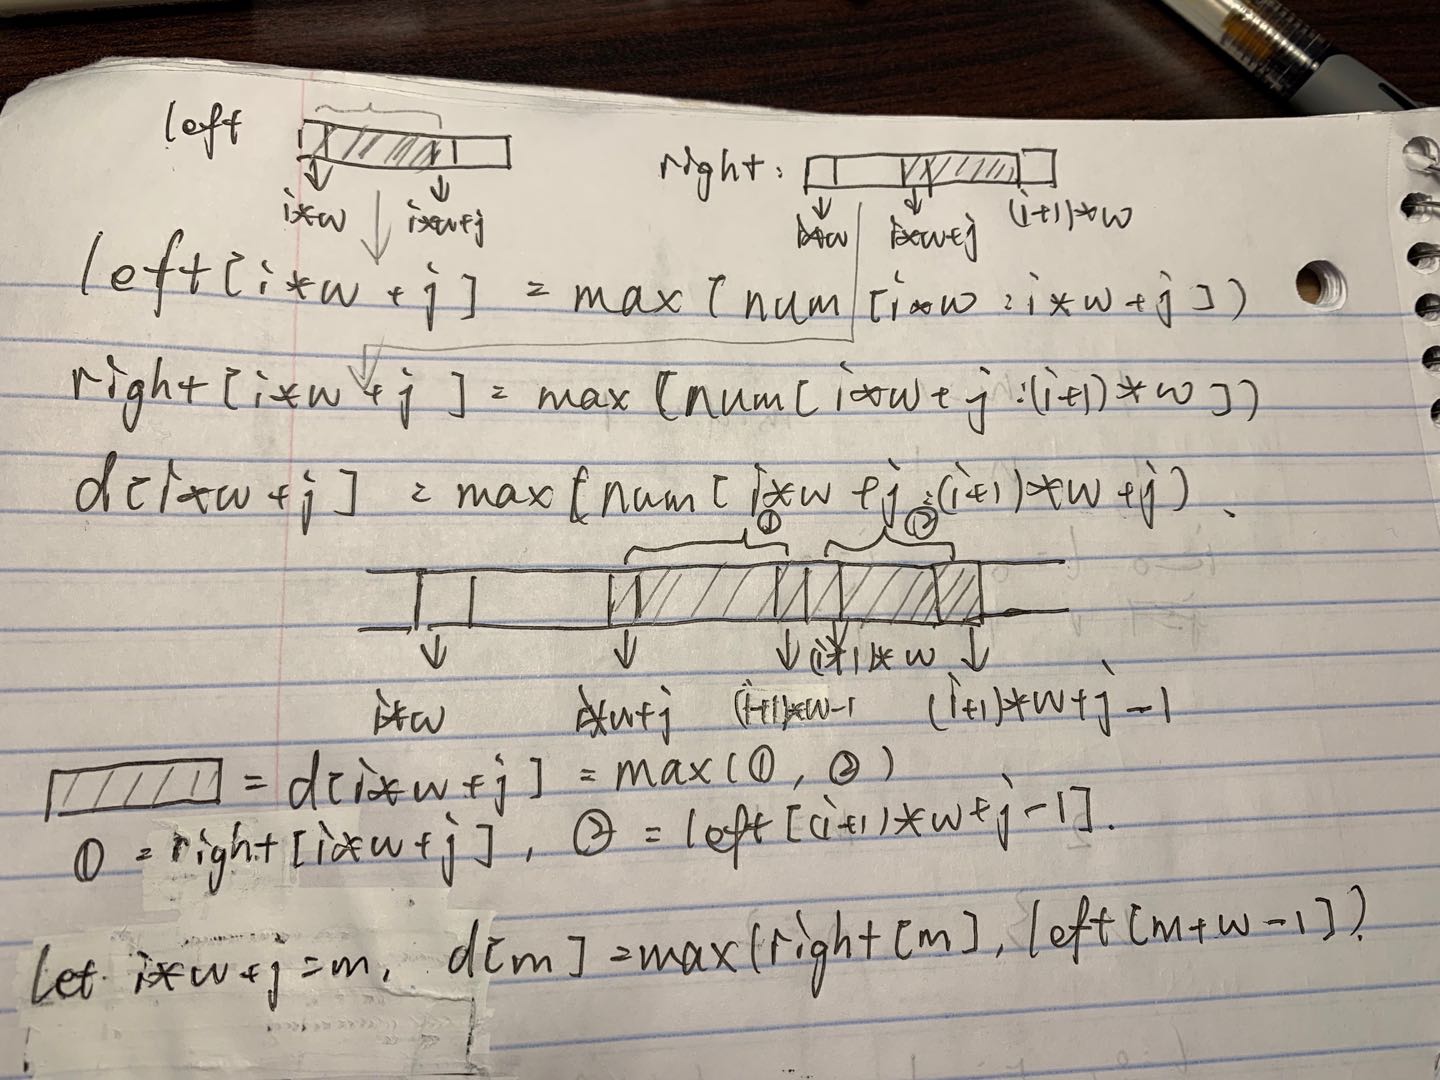 left
right:
i*w i*w+j
i*w i*w+j (i+1)*w
left[i*w+j] = max(num[i*w:i*w+j])
right[i*w+j] = max(num[i*w+j:(i+1)*w])
d[i*w+j] = max[num[i*w+j:(i+1)*w+j).
① ②
(i+1)*w
i*w i*w+j (i+1)*w-1 (i+1)*w+j-1
= d[i*w+j] = max(①, ②)
① = right[i*w+j], ② = left[(i+1)*w+j-1].
Let i*w+j=m, d[m]=max(right[m], left[m+w-1])